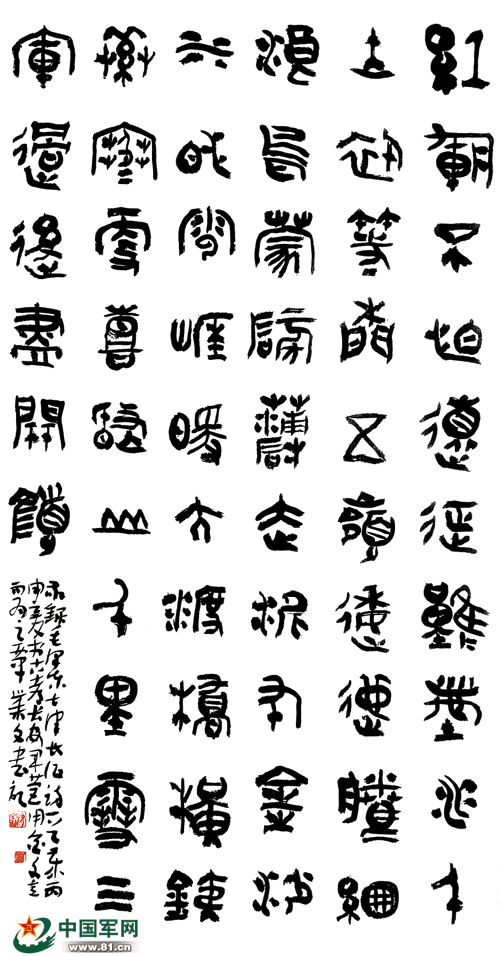 紅軍不怕遠征難萬水千
山只等閒五嶺逶迤騰細
浪烏蒙磅礴走泥丸金沙
水拍雲崖暖大渡橋橫鐵
索寒更喜岷山千里雪三
軍過後盡開顏
錄毛澤東七律長征詩一首丙
申夏
中国军网
www.81.cn